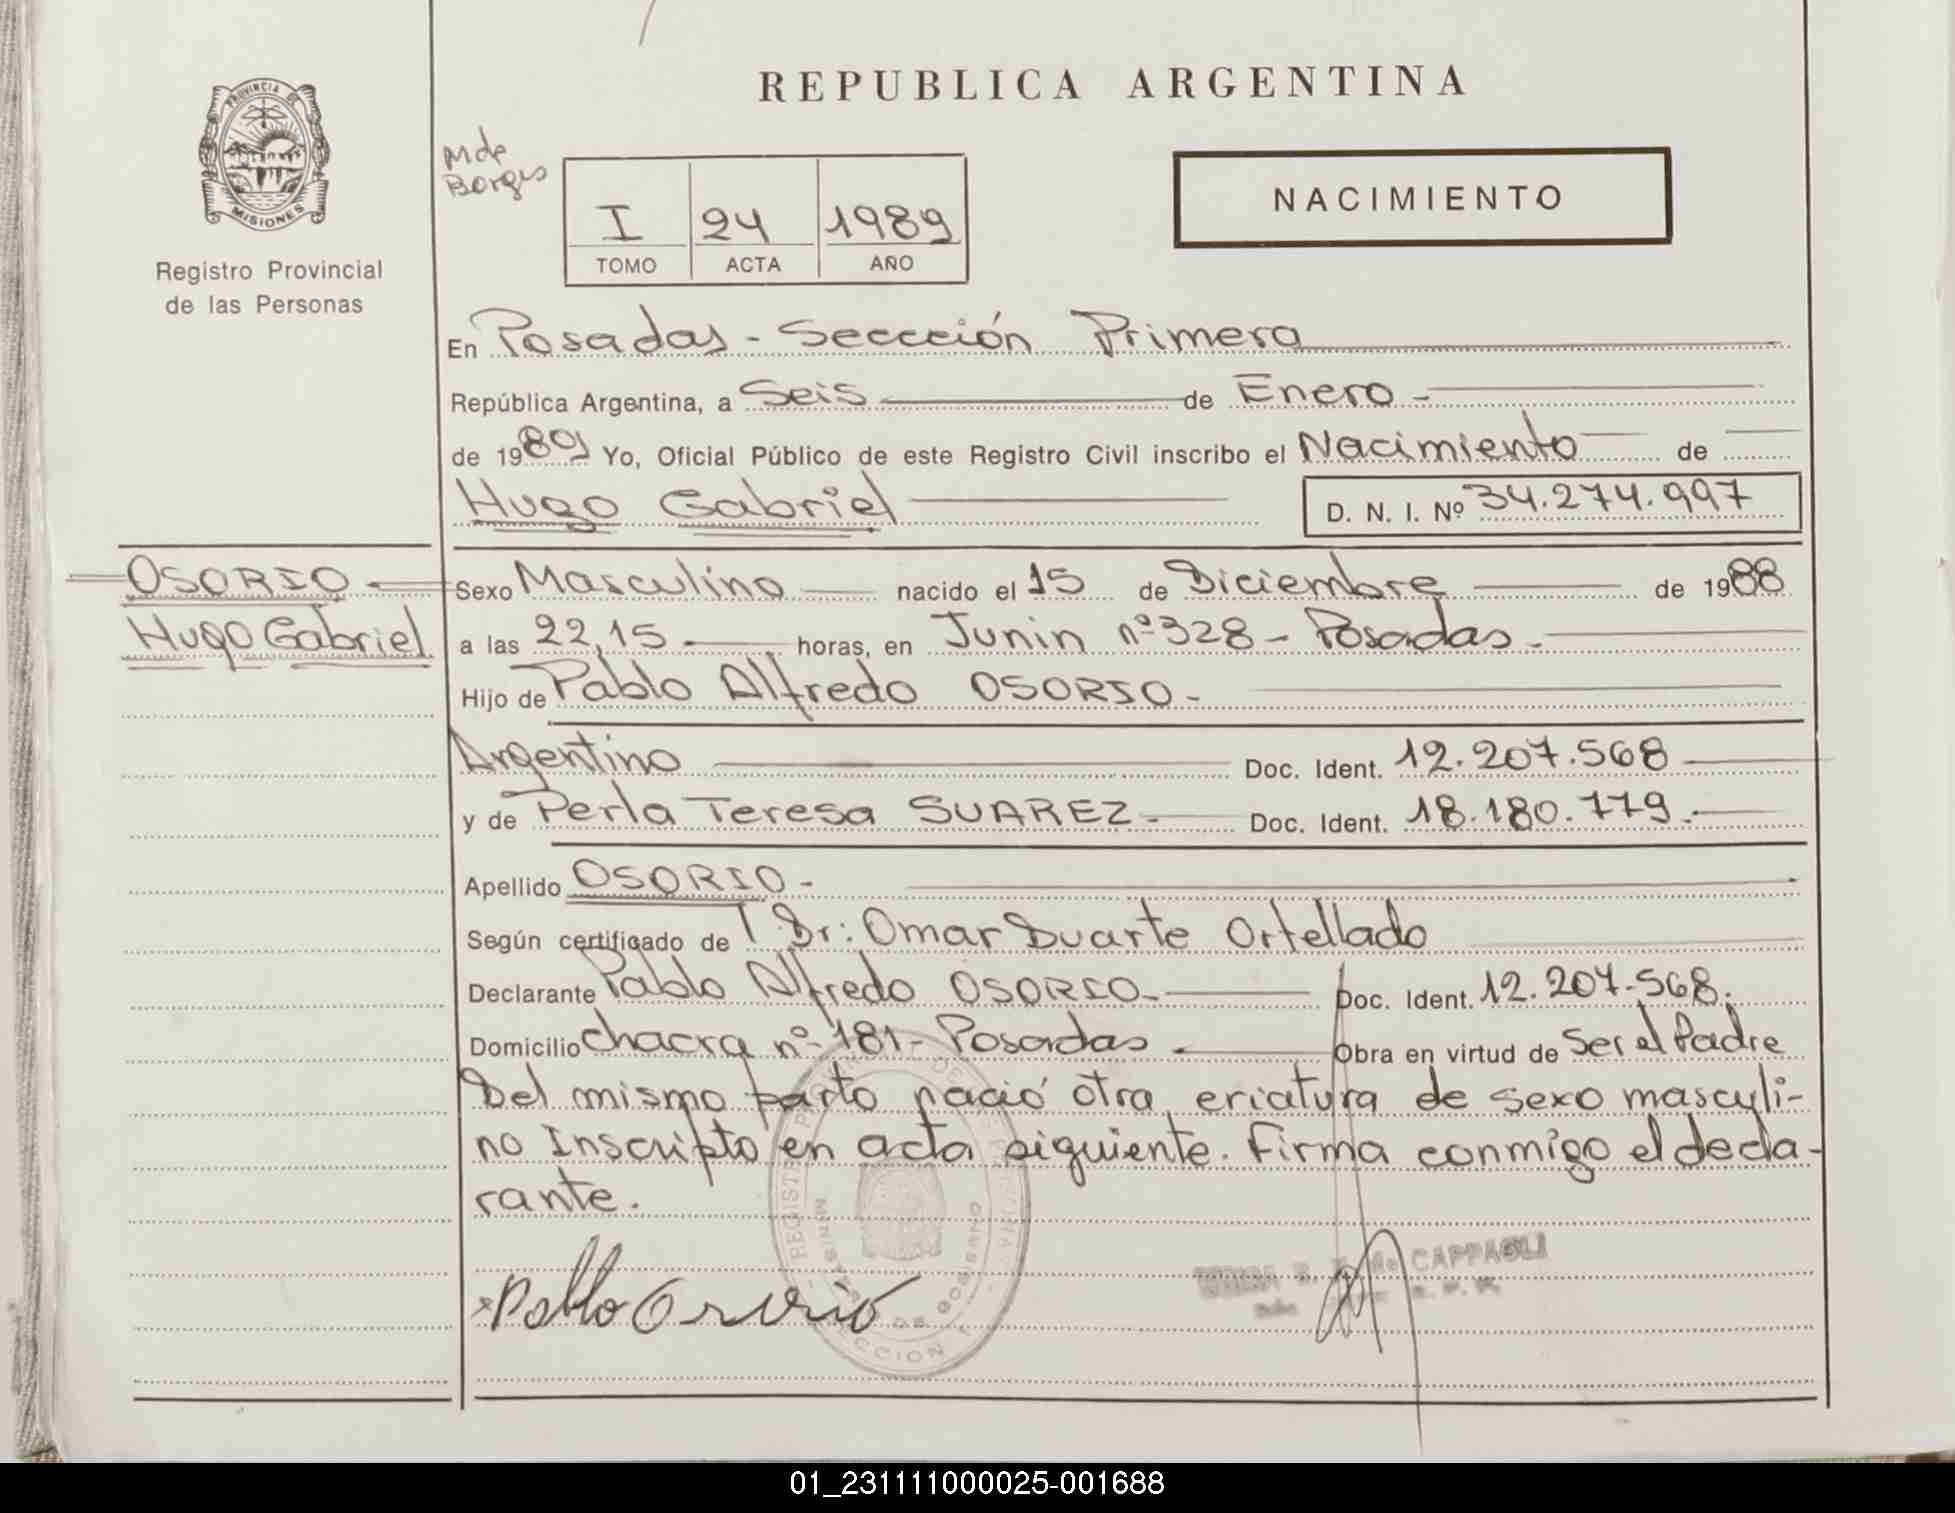 REPUBLICA ARGENTINA
PROVINCIA DE
MISIONES
Registro Provincial
de las Personas
M de
Borges
I 24 1989
TOMO ACTA AÑO
NACIMIENTO
En Posadas - Seccción Primera
República Argentina, a Seis de Enero -
de 1989 Yo, Oficial Público de este Registro Civil inscribo el Nacimiento de
Hugo Gabriel D. N. I. Nº 34.274.997
OSORIO
Hugo Gabriel
Sexo Masculino nacido el 15 de Diciembre de 1988
a las 22,15 horas, en Junin nº 328 - Posadas -
Hijo de Pablo Alfredo OSORIO -
Argentino Doc. Ident. 12.207.568
y de Perla Teresa SUAREZ - Doc. Ident. 18.180.779.-
Apellido OSORIO -
Según certificado de Dr: Omar Duarte Ortellado
Declarante Pablo Alfredo OSORIO - Doc. Ident. 12.207.568.
Domicilio chacra nº 181 - Posadas - Obra en virtud de Ser el Padre
Del mismo parto nació otra criatura de sexo masculi-
no Inscripto en acta siguiente. Firma conmigo el decla-
rante.
Pablo Osorio
de CAPPAGLI
01_231111000025-001688